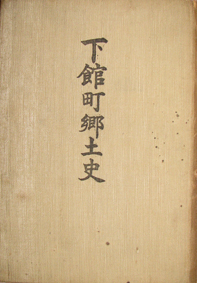 下館町郷土史